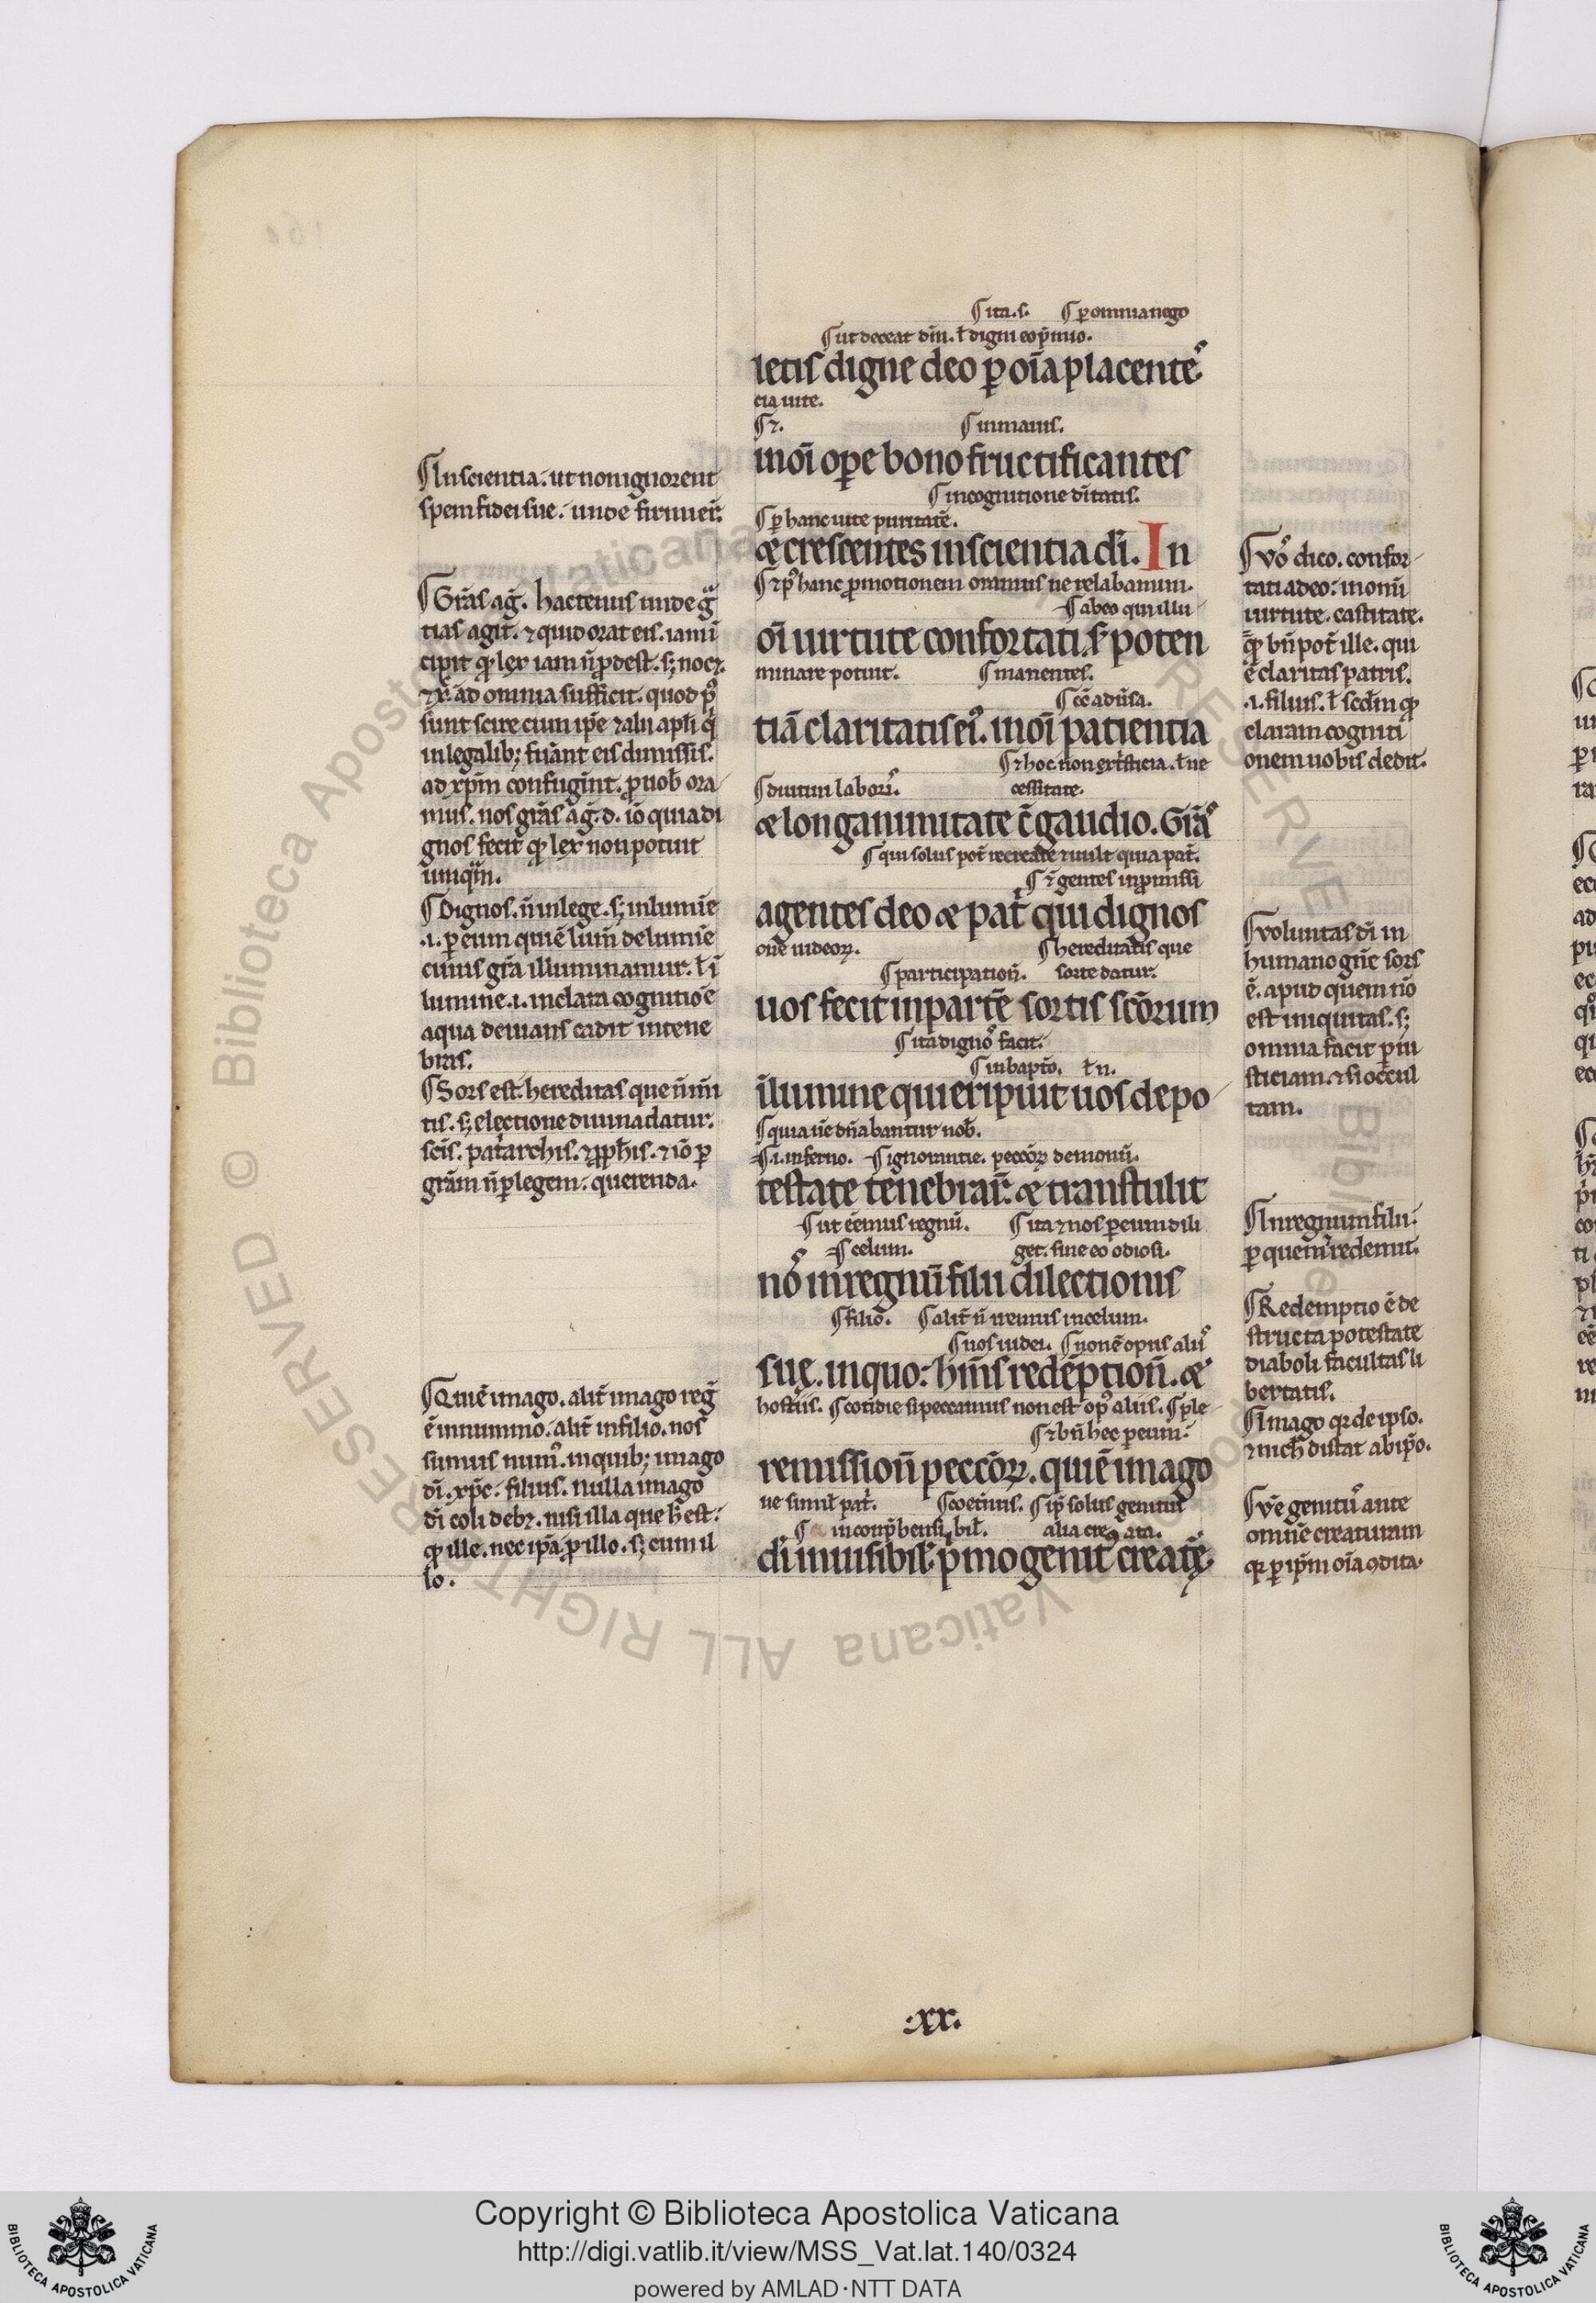 ¶ ita .s. ¶ ꝑ omnia nego
¶ ut deceat dñi. ł digni eo p̃mio.
letis digne deo ꝑ oĩa placente᷒.
cia uite.
¶ ⁊. ¶ in manis.
in oĩ oꝑe bono fructificantes
¶ in cognitione diũtatis.
¶ ꝑ hanc uite puritatẽ.
⁊ crescentes in scientia di̅. In
¶ ⁊ p᷒ hanc ꝓmotionem oramus ne relabamini.
¶ ab eo qui illu
oĩ uirtute confortati. s̄ poten
minare potuit. ¶ manentes.
¶ cc̃ adũsa.
tiã claritatis ei᷒. in oĩ patientia
¶ ⁊ hoc non ex t̃sticia. ł ne
¶ diutini labori᷒. cessitate.
⁊ longanimitate c̃ gaudio. Grã᷒
¶ qui solus pot̃ recreare ⁊ uult quia pat̃.
¶ ⁊̃ gentes in ꝓmissi
agentes deo ⁊ pat̃ qui dignos
onẽ iudeoꝝ. ¶ hereditatis que
¶ participation̄. sorte datur.
uos fecit in partẽ sortis sc̃orum
¶ ita digno᷒ facit.
¶ in bapt̃o. ł n.
ĩ lumine qui eripuit uos de po
¶ quia ñ dñabantur nob̃.
¶ .i. inferno. ¶ ignorantie. pecc̃oꝝ demonũ.
testate tenebrar̃. ⁊ transtulit
¶ ut eẽmus regnũ. ¶ ita ⁊ nos ꝑ eum dili
¶ celum. get. sine eo odiosi.
no᷒ in regnũ filii dilectionis
¶ filio᷒. ¶ alit̃ ñ uenitis in celum.
¶ uos iudei. ¶ non ẽ opus alii᷒
suę. in quo: hm̃s redẽption̄. ⁊
hostiis. ¶ cotidie si peccamus non est op᷒ aliis. ¶ ple
¶ ⁊ bñ hec ꝑ eum.
remission̄ pecc̃oꝝ. qui ẽ imago
ne simil̃ pat̃. ¶ coet̃nus. ¶ ip̃ solus genitus
¶ incomp̃hensibil̃. alia creata.
di̅ inuisibil̃. p̃mogenit᷒ creat̃ę.
¶ In scientia. ut non ignorent
spem fidei sue. unde firmier̃.
¶ Gr̃as ag̃. hactenus unde gᵃ
tias agit. ⁊ quid orat eis. iam ĩ
cipit qđ lex iam ñ ꝓdest. s; noc⁊.
⁊ xp̃ ad omnia sufficit. quod p᷒
sunt scire cum ip̃e ⁊ alii apli̅ q̃
in legalib; fũant eis dimissis.
ad xp̃m confugint̃. ꝓ uob̃ ora
mus. nos gr̃as ag̃. d. iõ quia di
gnos fecit qđ lex non potuit
umqᵃm.
¶ Dignos. ñ in lege. s; in lumĩe
.i. ꝑ eum qui ẽ lum̃ de lumĩe
cuius gr̃a illuminamur. ł ĩ
lumine .i. in clara cognitiõe
a qua deuians cadit in tene
bras.
¶ Sors est. hereditas que ñ m̃i
tis. s; electione diuina datur.
sc̃is. pat̃archis. ⁊ ꝓph̃is. ⁊ iõ ꝑ
gr̃am ñ ꝑ legem. querenda.
¶ Qui ẽ imago. alit̃ imago reg̃
ẽ in nummo. alit̃ in filio. nos
sumus num̃᷒. in quib; imago
di̅. xp̃c. filius. nulla imago
di̅ coli deb⁊. nisi illa que h̃ est.
qđ ille. nec ip̃a ꝓ illo. s; cum il
lo.
¶ Vo᷒ dico. confor
tati a deo. in om̃i
uirtute. castitate.
qđ bñ pot̃ ille. qui
ẽ claritas patris.
.i. filius. ł scđm qđ
claram cogniti
onem uobis dedit.
¶ Voluntas di̅ in
humano gñe sors
ẽ. apud quem nõ
est iniquitas. s;
omnia facit ꝑ iu
sticiam. ⁊ si occul
tam.
¶ In regnum filii.
ꝑ quem redemit.
¶ Redemptio ẽ de
structa potestate
diaboli facultas li
bertatis.
¶ Imago qr̃ de ipso.
⁊ nich̃ distat ab ip̃o.
¶ Vñ genitu᷒ ante
omnẽ creaturam
qr̃ ꝑ ip̃m oĩa ꝯdita.
.xx.
Copyright © Biblioteca Apostolica Vaticana
http://digi.vatlib.it/view/MSS_Vat.lat.140/0324
powered by AMLAD·NTT DATA
BIBLIOTECA APOSTOLICA VATICANA
BIBLIOTECA APOSTOLICA VATICANA